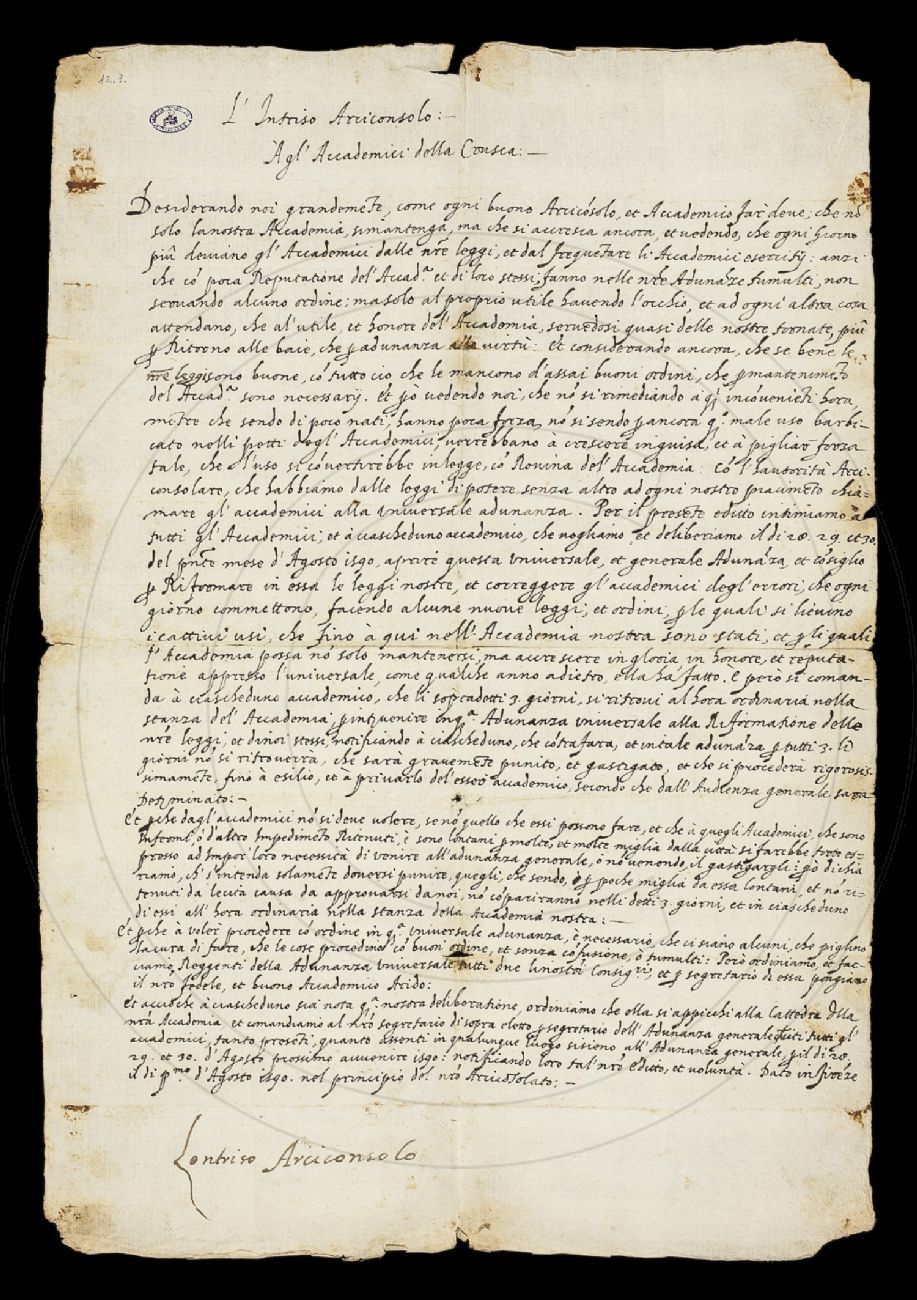 12.3.
L' Intriso Arciconsolo:—
Agl' Accademici della Crusca:—
Desiderando noi grandemẽte, come ogni buono Arcicõsolo, et Accademico far deve; che nõ
solo la nostra Accademia, si mantenga, ma che si accresca ancora, et vedendo, che ogni giorno
più deviano gl' Accademici dalle nr̃e leggi, et dal freque͂tare li Accademici esercitij: anzi
che cõ poca Reputatione del' Accad.ª et di loro stessi, fanno nelle nr̃e Adunãze tumulti, non
servando alcuno ordine: ma solo al proprio utile havendo l'occhio, et ad ogni altra cosa
attendano, che al' utile, et honore del' Accademia, servẽdosi quasi delle nostre tornate, più
ꝑ Ritorno alle baie, che ꝑ adunanza alle virtù: et considerando ancora, che se bene le
nr̃e leggi sono buone, cõ tutto ciò che le mancono d'assai buoni ordini, che ꝑ mantenimẽto
del' Accad.ª sono necessarij. et ꝑò vedendo noi, che nõ si rimediando à q̃i incõvenieti hora,
mẽtre che sendo di poco nati, hanno poca forza, nõ si sendo ꝑ ancora q.º male uso barbi-
cato nelli petti degl' Accademici, verrebbano à crescere in guisa, et à pigliar forza
tale, che l'uso si cõvertirebbe in legge, cõ Rovina del' Accademia: Cõ l'hautorità Arci-
consolare, che habbiamo dalle leggi di potere senza altro ad ogni nostro piacimẽto chia-
mare gl' accademici alla universale adunanza. Per il presẽte editto intimiamo à
tutti gl' Accademici, et à ciascheduno accademico, che vogliamo, et deliberiamo il di 28. 29. et 30.
del pñte mese d' Agosto 1589. aprire questa universale, et generale Adunãza, et cõsiglio
ꝑ Riformare in essa le leggi nostre, et correggere gl' accademici degl' errori, che ogni
giorno commettono, facendo alcune nuove leggi, et ordini, ꝑ le quali si lievino
i cattivi usi, che fino à qui nell' Accademia nostra sono stati, et ꝑ li quali
l' Accademia possa nõ solo mantenersi, ma accrescere in gloria, in honore, et reputa-
tione appresso l'universale, come qualche anno adietro, ella ha fatto. E però si coman-
da à ciascheduno accademico, che li sopradetti 3. giorni, si ritrovi al hora ordinaria nella
stanza del' Accademia, ꝑ intꝓvenire in q.ª Adunanza universale alla Riformatione delle
nr̃e leggi, et di noi stessi, notificando à ciascheduno, che cõtrafara, et in tale adunãza ꝑ tutti 3. li
giorni nõ si ritroverrà, che sarà gravemẽte punito, et gastigato, et che si procederà rigorosis-
simamẽte, fino à esilio, et à privarlo del' esser accademico, secondo che dall' Audienza generale sarà
Det̃minato:—
Et ꝑche dagl' accademici nõ si deve volere, se nõ quello che essi possono fare, et che à quegli Accademici, che sono
Infermi, ò d'altro Impedimẽto Ritenuti, è sono lontani ꝑ molte, et molte miglia dalla città si farebbe torto es-
presso ad Impor loro necessità di venire all' adunanza generale, ò nõ venendo, il gastigargli: ꝑò dichia
riamo, ch' s'intenda solamẽte doversi punire, quegli, che sendo, ò ꝑ poche miglia da essa lontani, et nõ ri-
tenuti da lecita causa da approvarsi da noi, nõ cõpariranno nelli detti 3. giorni, et in ciascheduno
di essi all' hora ordinaria nella stanza della Accademia nostra:—
Et ꝑche à voler procedere cõ ordine in q.ª universale adunanza, è necessario, che ci siano alcuni, che piglino
la cura di fare, che le cose procedino cõ buon ordine, et senza cõfusione, ò tumulti: Però ordiniamo, et fac-
ciamo Reggenti della Adunanza Universale tutti due li nostri Consig.ri, et ꝑ segretario di essa pongiamo
il nr̃o fedele, et buono Accademico Arido:
Et acciochè à ciascheduno sia nota q.ª nostra deliberatione, ordiniamo che ella si appicchi alla Cattedra della
nr̃a Accademia, et comandiamo al nr̃o segretario di sopra eletto ꝑ segretario dell' Adunanza generale citi tutti gl'
accademici, tanto presẽti, quanto assenti in qualunque luogo si sieno all' Adunanza generale, ꝑ il di 28.
29. et 30. d' Agosto prossimo avvenire 1589: notificando loro tal' nr̃o editto, et volontà. Dato in Firẽze
il di p.mo d' Agosto 1589. nel principio del nr̃o Arcicõsolato:—
Lontriso Arciconsolo